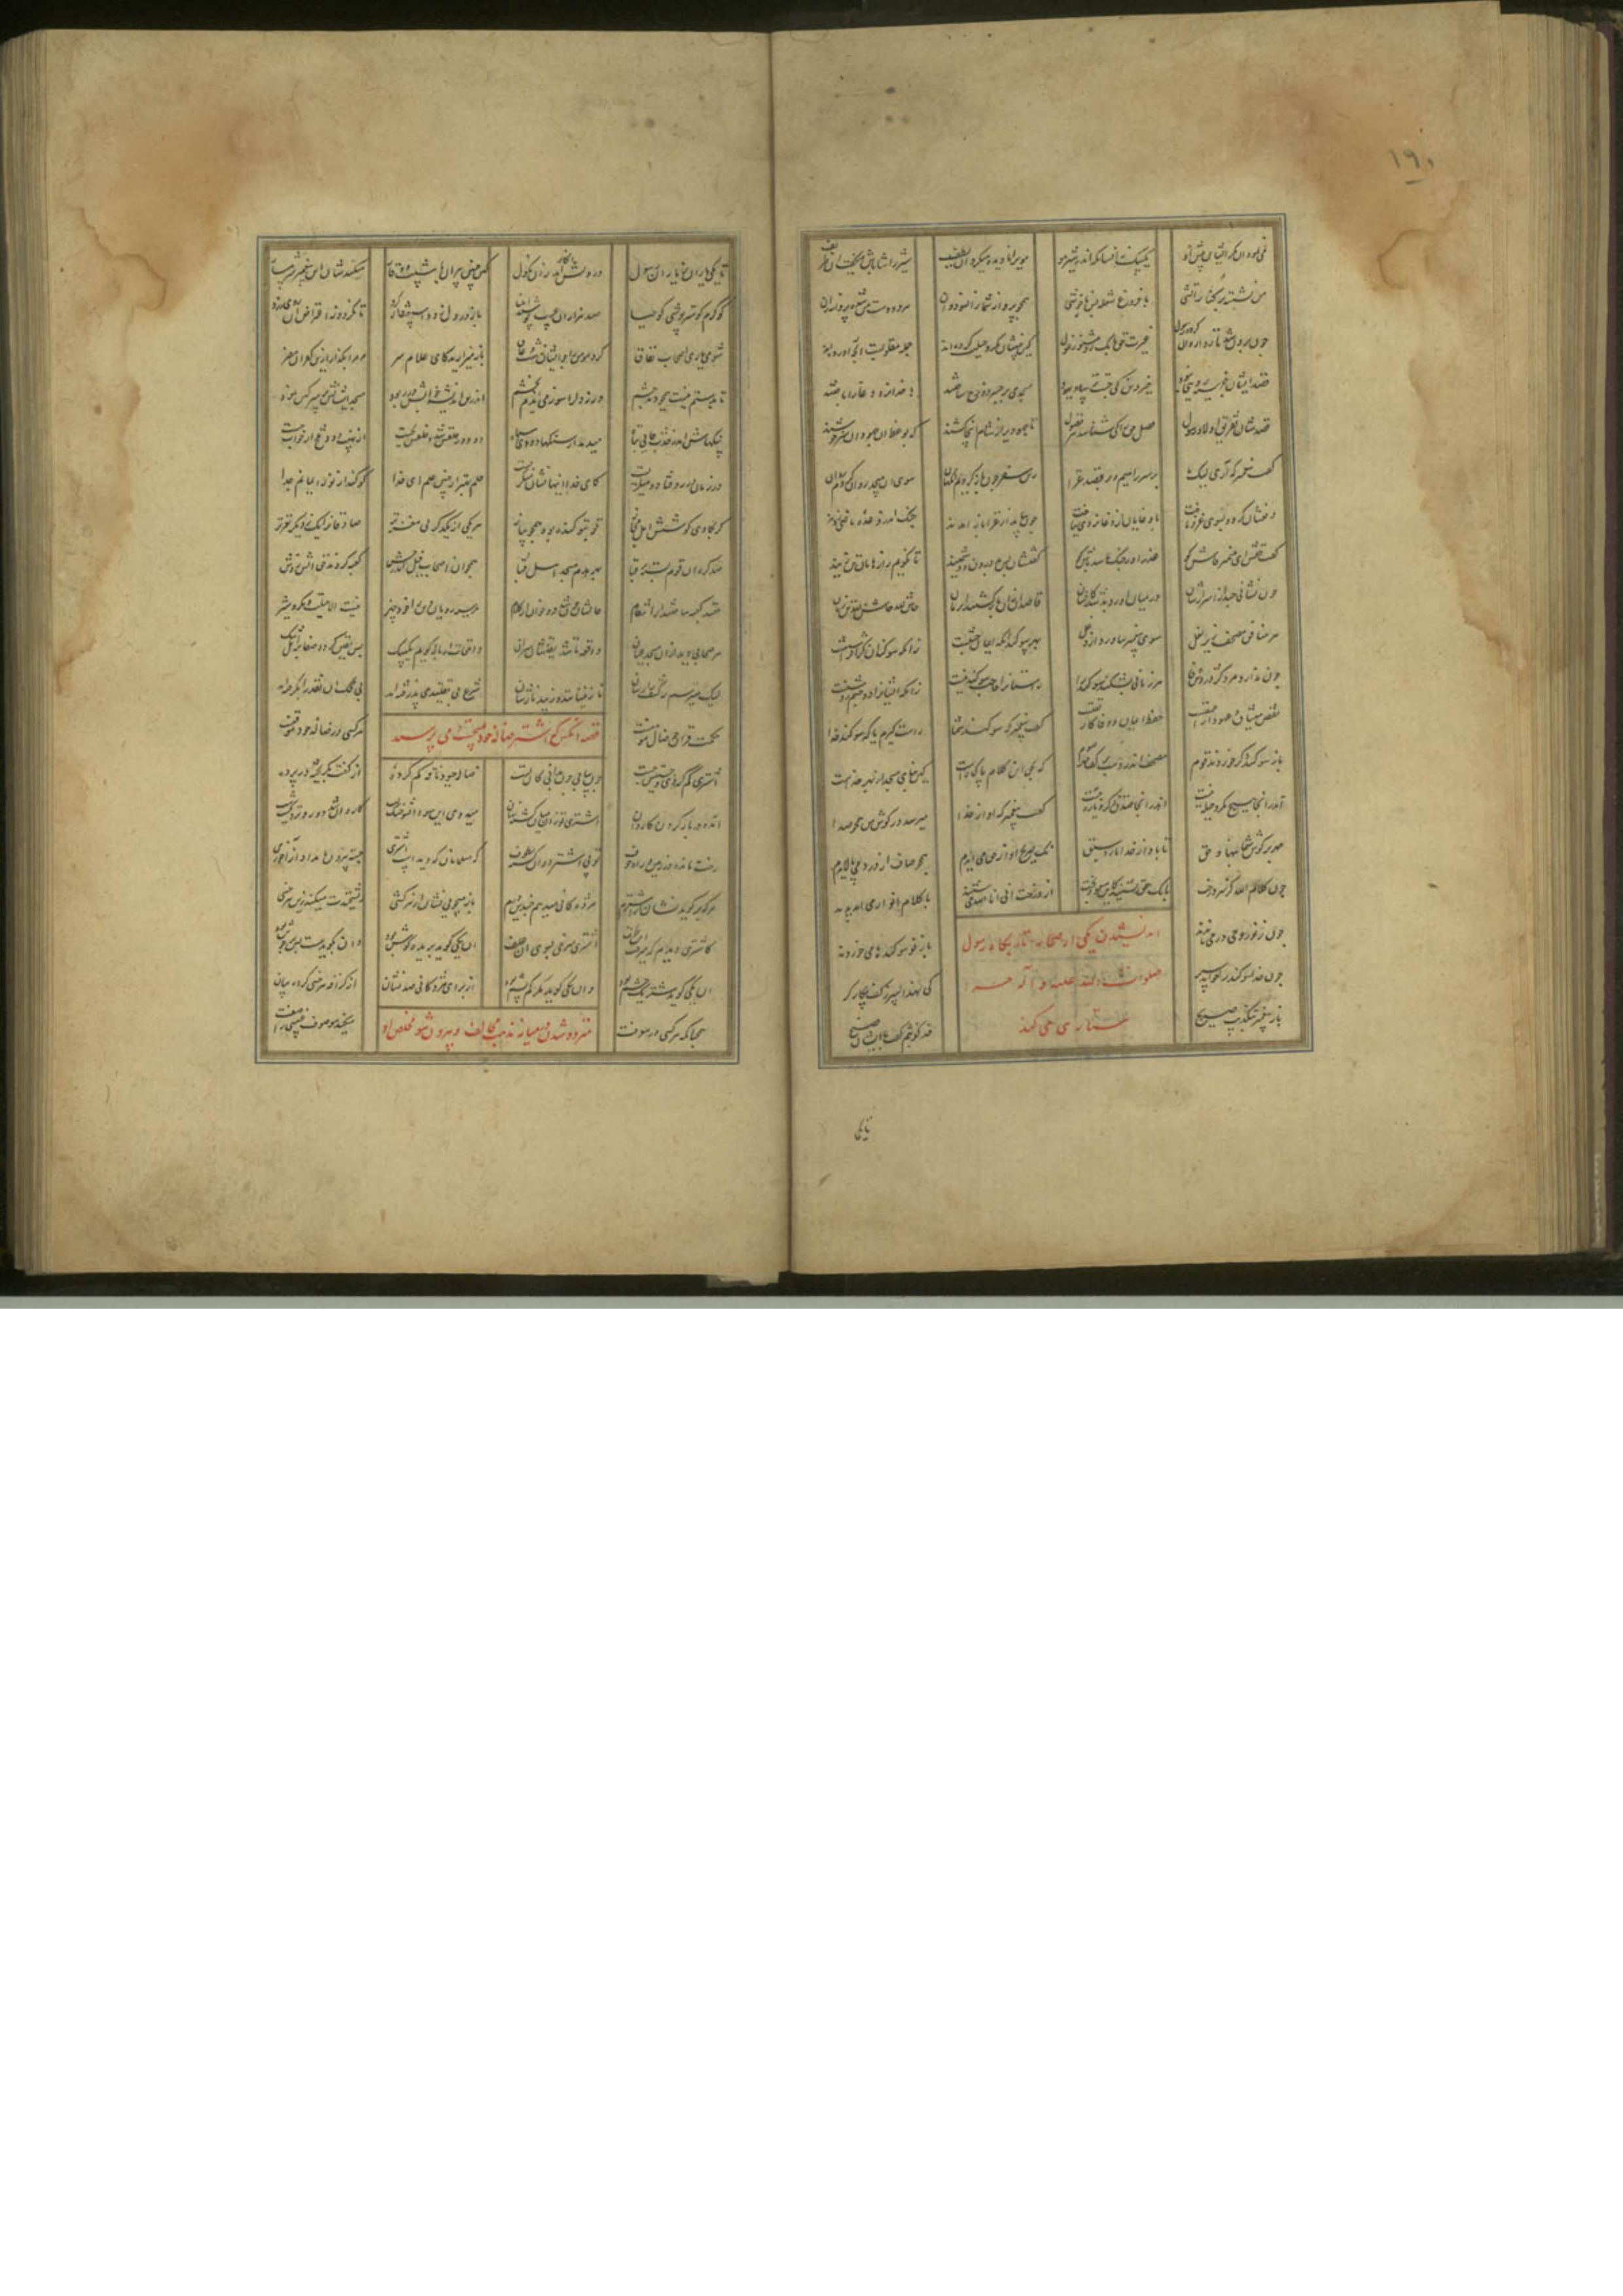 ۱۹۰
می نمود آن مکر ایشان پیش او یک بیک زانسانکه اندر شیر مو موی را نادیده میکرد آن لطیف شیر را شاباش میگفت آن ظریف
من نشسته بر کنار آتشی با فروغ و شعله بس ناخوشی همچو پروانه شما آنسو دوان هر دو دست من شده پروانه ران
چون بر آن شد تا روان گردد رسول غیرت حق بانگ زد مشنو ز غول کین خبیثان مکر و حیلت کرده اند جمله مقلوبست آنچ آورده اند
قصد ایشان جز سیه رویی نبود خیر دین کی جست ترسا و جهود مسجدی بر جسر دوزخ ساختند با خدا نرد دغاها باختند
قصدشان تفریق اصحاب رسول فضل حق را کی شناسد هر فضول تا جهودی را ز شام اینجا کشند که بوعظ او جهودان سرخوشند
گفت پیغمبر که آری لیک ما بر سر راهیم و بر قصد غزا زین سفر چون باز گردم آنگهان سوی آن مسجد روان گردم روان
دفعشان کرد و بسوی غزو تاخت با دغایان از دغا نردی بباخت چون بیامد از غزا باز آمدند چنگ اندر وعده ماضی زدند
گفت حقش ای پیمبر فاش گو غدر را ور جنگ باشد باش گو گفتشان بس بد درون و دشمنید تا نگویم رازهاتان تن زنید
چون نشانی چند از اسرارشان در بیان آورد بد شد کارشان قاصدان زو باز گشتند آن زمان حاش لله حاش لله دم زنان
هر منافق مصحفی زیر بغل سوی پیغمبر بیاورد از دغل بهر سوگندان که ایمان جنتیست زانکه سوگند آن کژان را سنتیست
چون ندارد مرد کژ در دین وفا هر زمانی بشکند سوگند را راستان را حاجت سوگند نیست زانکه ایشان را دو چشم روشنیست
نقض میثاق و عهود از احمقیست حفظ ایمان و وفا کار تقیست گفت پیغمبر که سوگند شما راست گیرم یا که سوگند خدا
باز سوگند دگر خوردند قوم مصحف اندر دست و بر لب مهر صوم که بحق این کلام پاک راست کین بنای مسجد از بهر خداست
اندر آنجا هیچ مکر و حیله نیست اندر آنجا صدق و ذکر و یاربیست گفت پیغمبر که آواز خدا میرسد در گوش من همچون صدا
مهر بر گوش شما بنهاد حق تا بآواز خدا نارد سبق نک صریح آواز حق می آیدم همچو صاف از درد می پالایدم
چون کلام الله کز سوی درخت بانگ حق بشنید کای مسعود بخت از درخت انی انا الله می شنید با کلام انوار می آمد پدید
چون ز نور وحی در می ماندند باز نو سوگندها می خواندند
چون خدا سوگند را خواند سپر کی نهد اسپر ز کف پیکارگر
باز پیغمبر بتکذیب صریح قد کذبتم گفت با ایشان فصیح
اندیشیدن یکی از صحابه تا بکار رسول
صلوات الله علیه و آله چرا
ستاری نمی کند
تا یکی
تا یکی یاری ز یاران رسول در دلش انکار آمد زان نکول که چنین پیران با شیب و وقار میکندشان این پیمبر شرمسار
کو کرم کو سترپوشی کو حیا صد هزاران عیب پوشند انبیا باز در دل زود استغفار کرد تا نگردد ز اعتراض او روی زرد
شومی یاری اصحاب نفاق کرد مومن را چو ایشان زشت و عاق باز می زارید کای علام سر مر مرا مگذار بر کفران مصر
دل بدستم نیست همچون دید چشم ورنه دل را سوزمی این دم بخشم اندرین اندیشه خوابش در ربود مسجد ایشانش پر سرگین نمود
سنگهاش اندر حدث جای تباه میدمید از سنگها دود سیاه دود در حلقش شد و حلقش بخست از نهیب دود تلخ از خواب جست
در زمان در رو فتاد و میگریست کای خدا اینها نشان منکریست خلم بهتر از چنین حلم ای خدا کو کند از نور ایمانم جدا
گر بکاوی کوشش اهل مجاز تو بتو گنده بود همچون پیاز هر یکی از یکدگر بی مغزتر صادقان را یک ز دیگر نغزتر
صد کمر آن قوم بسته بر قبا بهر هدم مسجد اهل قبا همچو آن اصحاب فیل اندر حبش کعبه کردند حق آتش زدش
قصد کعبه ساختند از انتقام حالشان چون شد فرو خوان از کلام مر سیه رویان دین را خود جهیز نیست الا حیلت و مکر و ستیز
هر صحابی دید زان مسجد عیان واقعه تا شد یقینشان سر آن واقعات ار باز گویم یک بیک بس یقین گردد صفا بر اهل شک
لیک میترسم ز کشف رازشان نازنینانند و زیبد نازشان شرع بی تقلید می پذرفته اند بی محک آن نقد را بگرفته اند
حکمت قرآن چو ضاله مومنست هر کسی در ضاله خود موقنست
قصه آنکس که اشتر ضاله خود میجست و می پرسید
اشتری گم کردی و جستیش چست چون بیابی چون ندانی کان تست ضاله چبود ناقه گم کرده از کفت بگریخته در پرده
آمده در بار کردن کاروان اشتر تو از میان گشته نهان میدوی این سو و آن سو خشک لب کاروان شد دور و نزدیکست شب
رخت مانده در زمین در راه خوف تو پی اشتر دوان گشته بطوف که مسلمانان که دیدست اشتری جسته بیرون بامداد از آخری
هر که بر گوید نشان از اشترم مژدگانی میدهم چندین درم باز میجویی نشان از هر کسی ریشخندت میکند زین هر خسی
کاشتری دیدیم که میرفت این طرف اشتری سرخی بسوی آن علف آن یکی گوید بریده گوش بود وان بگوید جلش منقوش بود
آن یکی گوید شتر یک چشم بود وان یکی گوید ز گر بی پشم بود از برای مژدگانی صد نشان از گزافه هر خسی کرده بیان
همچنانکه هر کسی در معرفت میکند موصوف غیبی را صفت
متردد شدن در میان مذهبهای مخالف و بیرون شو و مخلص